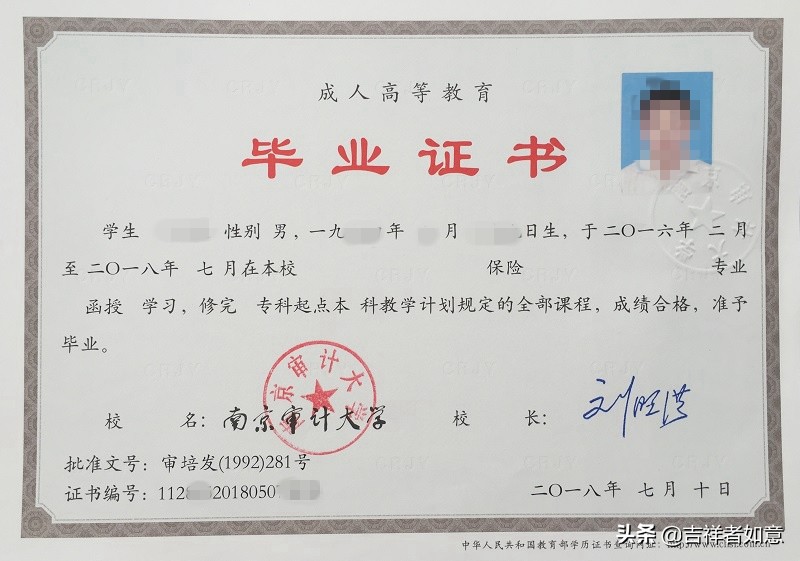 成人高等教育
毕业证书
学生 性别 男，一九 年 月 日生，于二〇一六年 二 月
至二〇一八年 七 月在本校 保险 专业
函授 学习，修完 专科起点本 科教学计划规定的全部课程，成绩合格，准予
毕业。
南京审计大学
校 名：南京审计大学 校 长：刘旺洪
批准文号：审培发(1992)281号
证书编号：112 2018050
二〇一八年 七 月 十 日
中华人民共和国教育部学历证书查询网址：http://www.chsi.com.cn
头条 @吉祥者如意